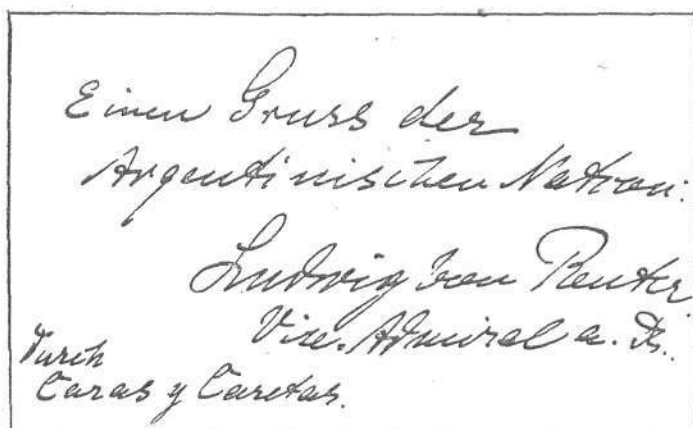 Einen Gruss der
Argentinischen Nation.
Ludwig von Reuter.
Vice-Admiral a. D.
Durch
Caras y Caretas.